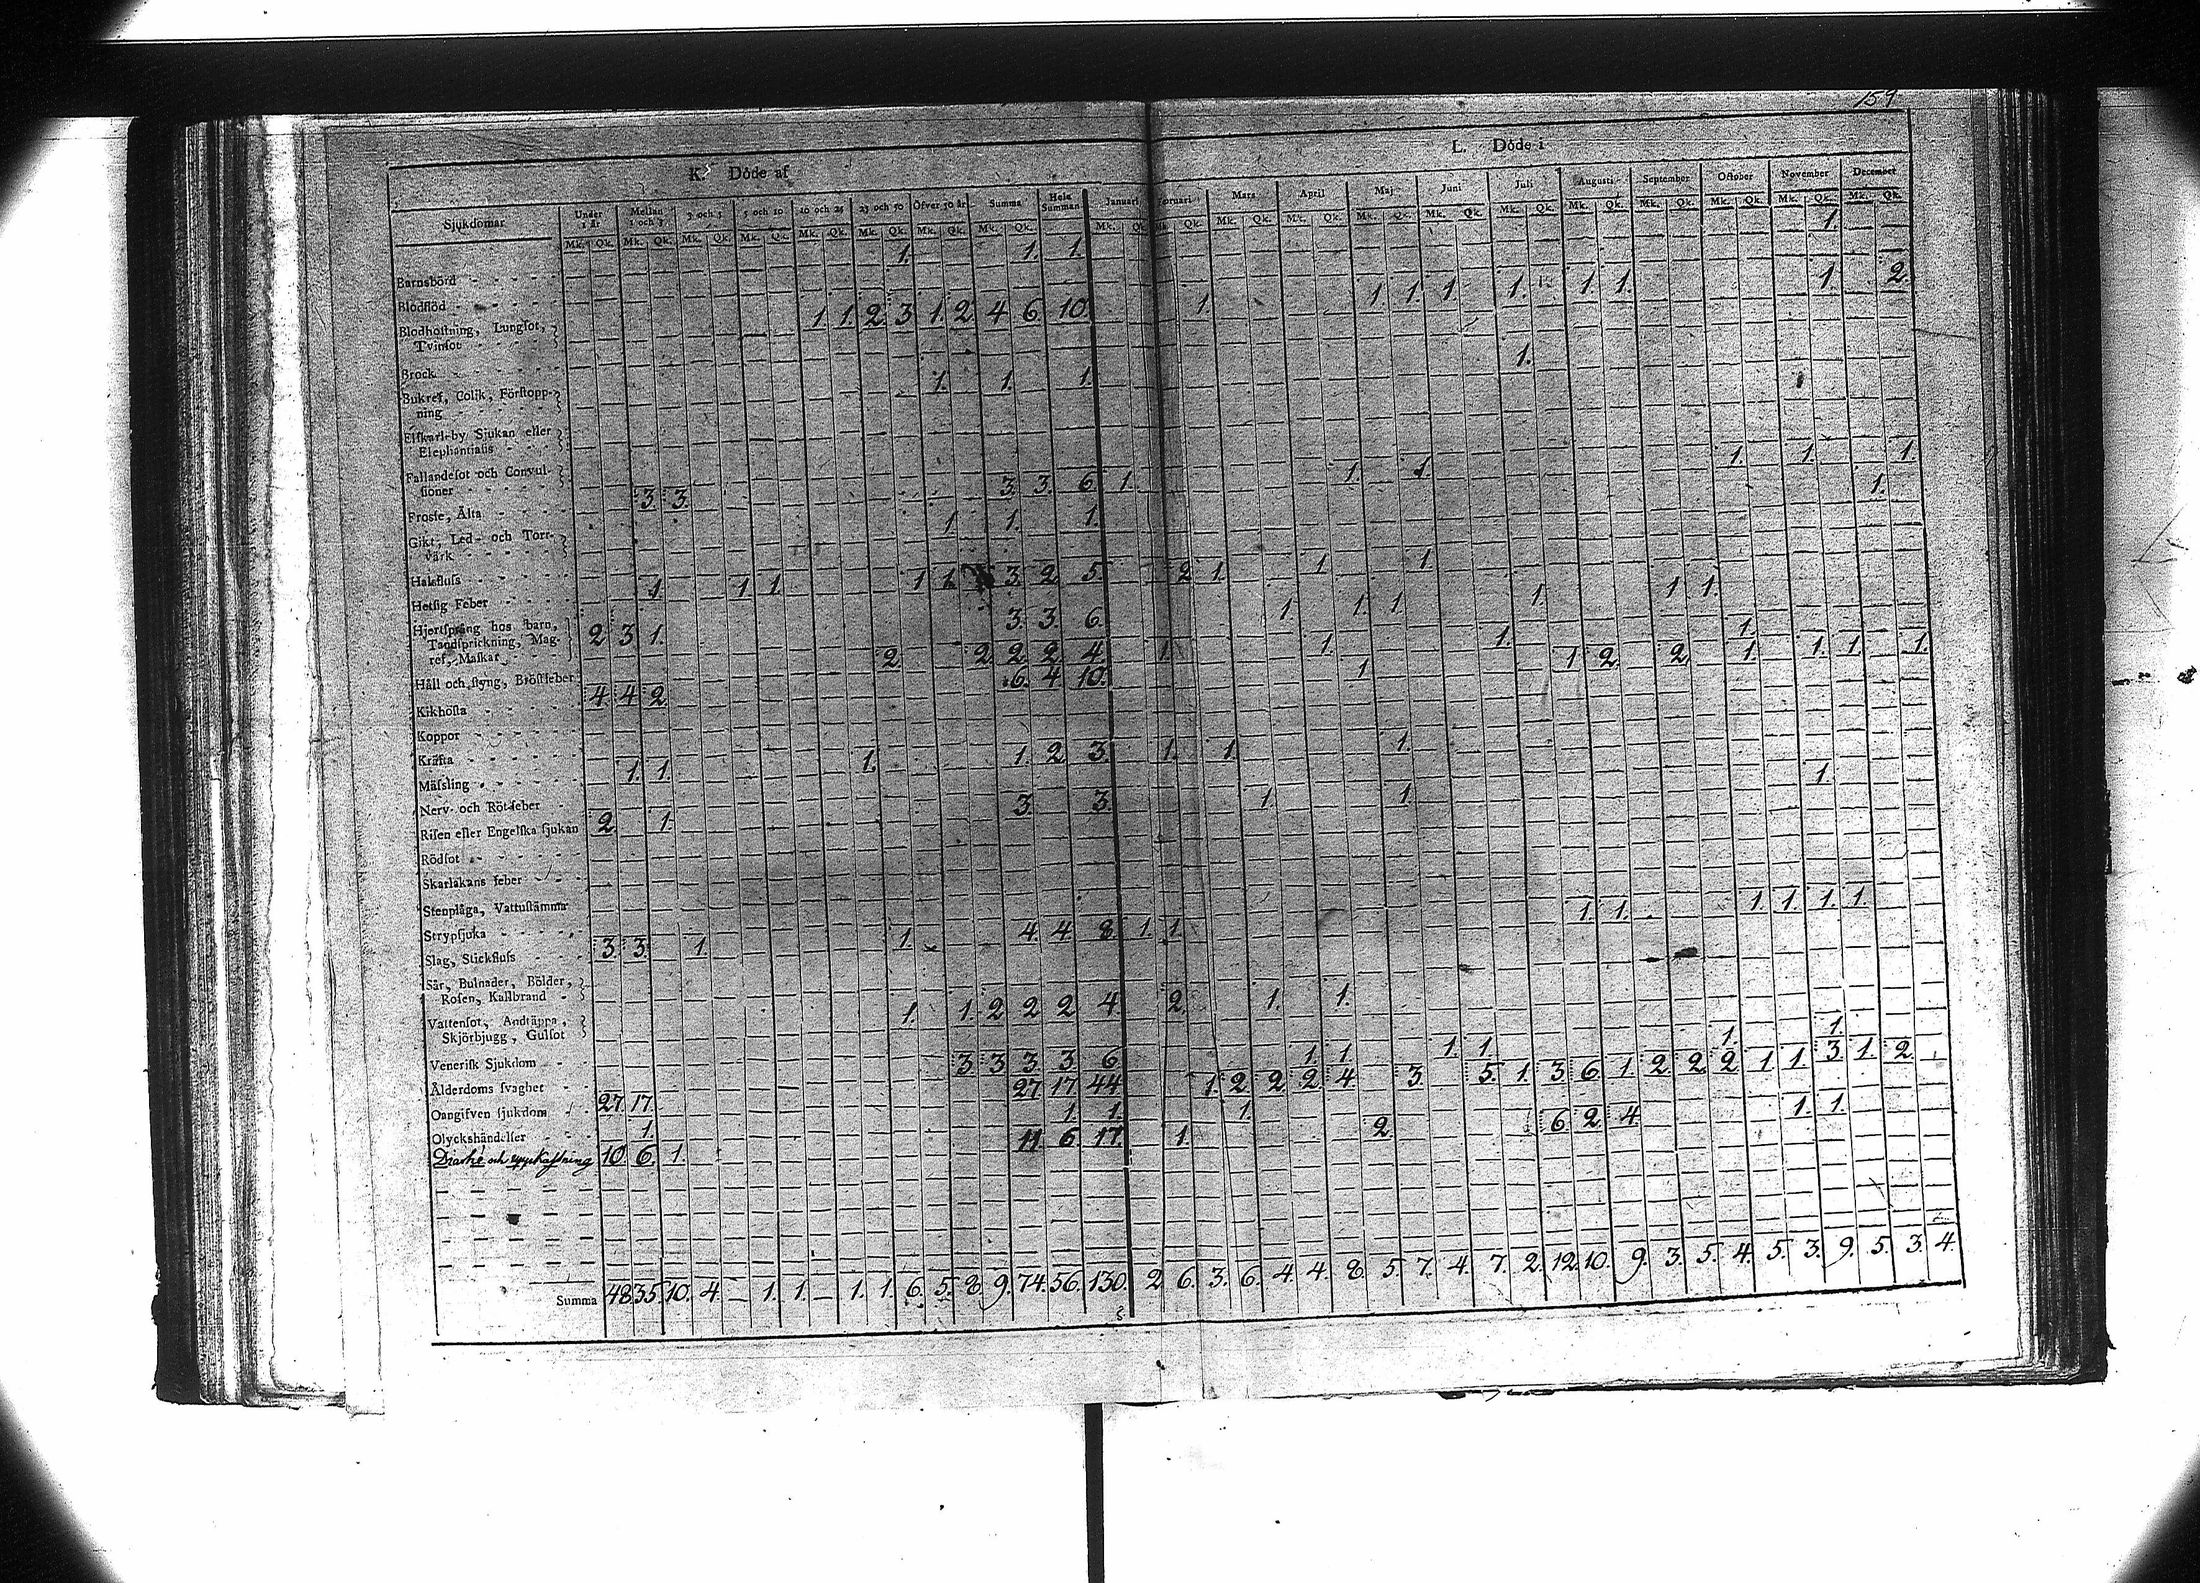 159
K. Döde af
L. Döde i
Sjukdomar Under 1 år Mellan 1 och 3 3 och 5 5 och 10 10 och 25 25 och 50 Öfver 50 år Summa Hela Summan Januari Februari Mars April Maj Juni Juli Augusti September October November December
Mk. Qk. Mk. Qk. Mk. Qk. Mk. Qk. Mk. Qk. Mk. Qk. Mk. Qk. Mk. Qk. Mk. Qk. Mk. Qk. Mk. Qk. Mk. Qk. Mk. Qk. Mk. Qk. Mk. Qk. Mk. Qk. Mk. Qk. Mk. Qk. Mk. Qk. Mk. Qk.
Barnsbörd 1. 1. 1. 1.
Blodflöd
Blodhostning, Lungsot,
Tvinsot 1. 1. 2. 3. 1. 2 4 6 10. 1. 1. 1. 1. 1. 1. 1. 1. 2.
Brock
Bukref, Colik, Förstopp-
ning 1. 1. 1. 1.
Elfkarleby Sjukan eller
Elephantiasis
Fallandesot och Convul-
sioner 3. 3. 3. 3. 6. 1. 1. 1. 1. 1. 1.
Frosse, Älta 1. 1. 1. 1.
Gikt, Led- och Torr-
värk
Halsfluss 1. 1. 1. 1. 1. 3. 2. 5. 2. 1. 1. 1.
Hetsig Feber
Hjertsprång hos barn,
Tandsprickning, Mag-
ref, Maskar 2 3 1. 3. 3. 6. 1. 1. 1. 1. 1. 1.
Håll och styng, Bröstfeber 2. 2. 2. 2. 4. 1. 1. 1. 1.
Kikhosta 4. 4. 2. 6. 4 10. 1. 1. 2. 2. 1. 1. 1. 1.
Koppor
Kräfta
Mässling 1. 1. 1. 1. 2. 3. 1. 1. 1.
Nerv- och Rötfeber
Risen eller Engelska sjukan 2. 1. 3. 3. 1. 1. 1.
Rödsot
Skarlakans feber
Stenplåga, Vattustämma
Strypsjuka
Slag, Stickfluss 3. 3. 1. 1. 4. 4. 8. 1. 1. 1. 1. 1. 1. 1. 1.
Sår, Bulnader, Bölder,
Rosen, Kallbrand
Vattensot, Andtäppa,
Skjörbjugg, Gulsot 1. 1. 2 2 2 4. 2. 1. 1.
Venerisk Sjukdom
Ålderdoms svaghet 3. 3. 3. 3. 6. 1. 1. 1. 1. 1. 1.
Oangifven sjukdom 27. 17. 27 17. 44. 1. 2 2. 2. 4. 3. 5. 1. 3. 6. 1. 2. 2. 2. 1. 1. 3. 1. 2.
Olyckshändelser 1. 1. 1. 1.
Diarhé och uppkastning 10 6. 1. 11. 6. 17. 1. 2. 6. 2. 4. 1. 1.
Summa 48. 35. 10. 4. 1. 1. 1. 1. 6. 5. 8. 9. 74. 56. 130. 2 6. 3. 6. 4. 4. 8. 5. 7. 4. 7. 2. 12. 10. 9. 3. 5. 4. 5. 3. 9. 5. 3. 4.